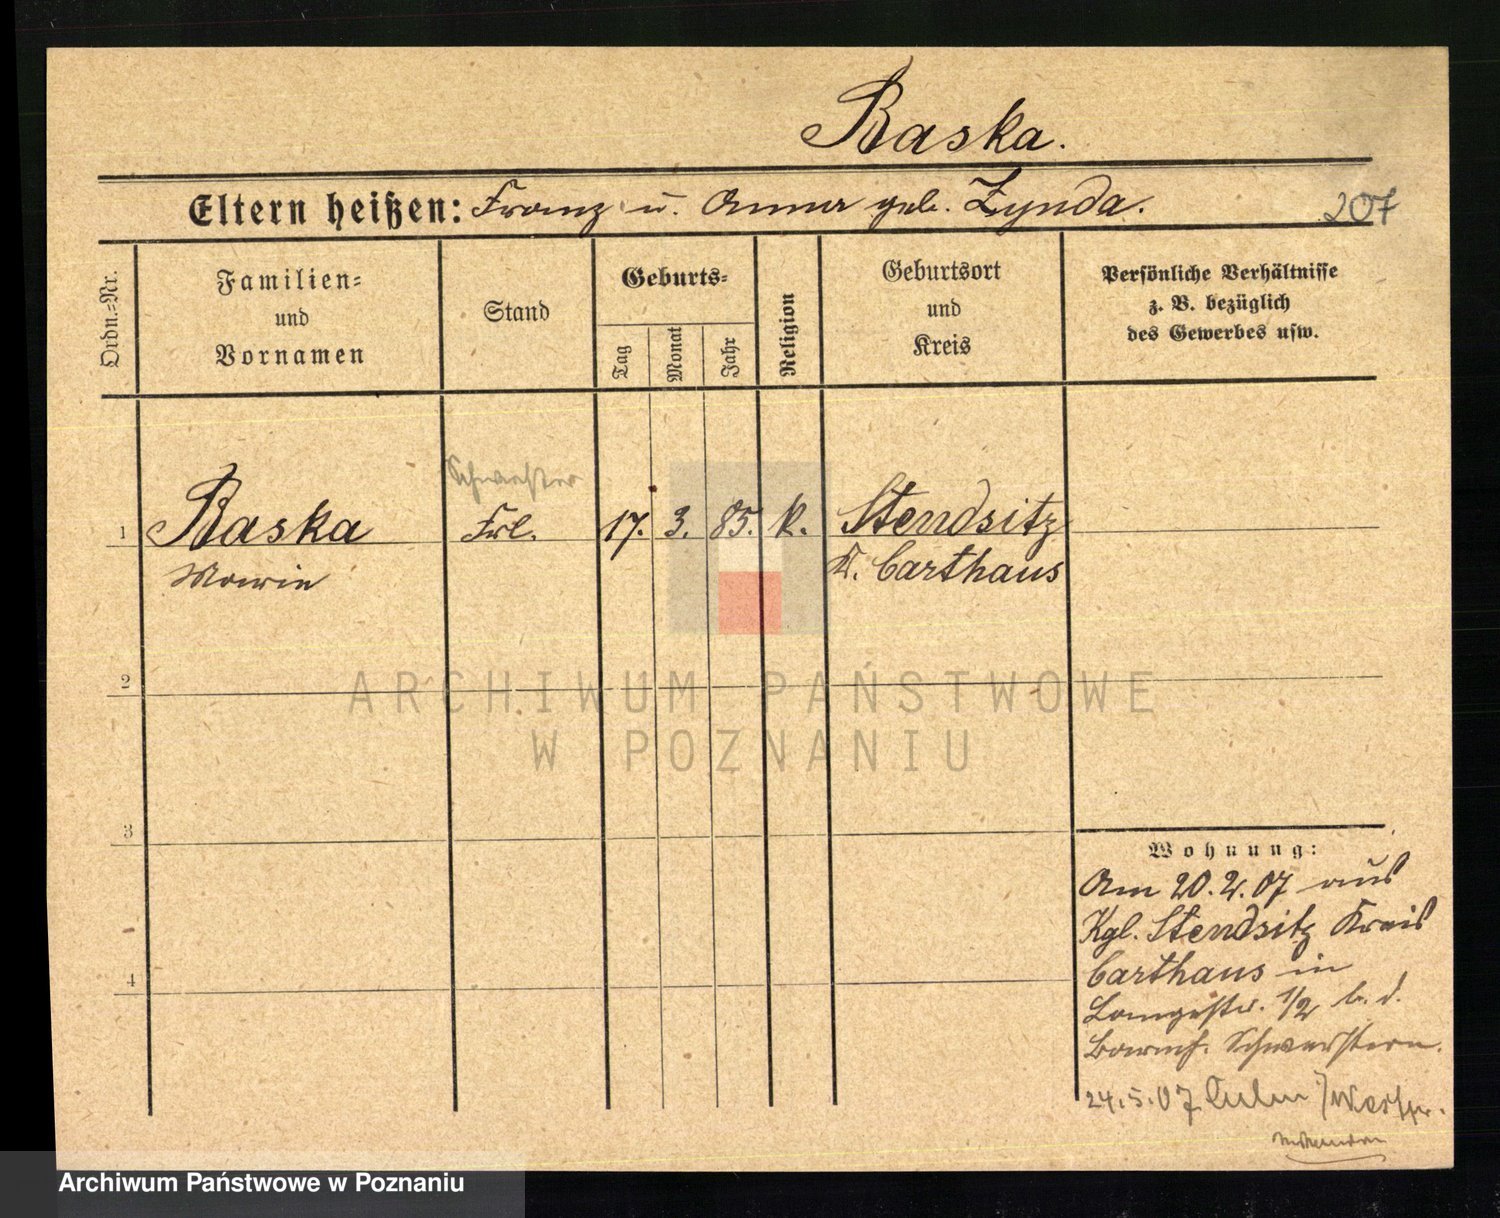 Raska.
Eltern heißen: Franz u. Anna geb. Zynda.
207
Ordn.=Nr.
Familien=
und
Vornamen
Stand
Geburts=
Tag
Monat
Jahr
Religion
Geburtsort
und
Kreis
Persönliche Verhältnisse
z. B. bezüglich
des Gewerbes usw.
Schwester
1 Raska Frl. 17. 3. 85. k. Stendsitz
Marie K. Carthaus
2
ARCHIWUM PAŃSTWOWE
W POZNANIU
3
Wohnung:
Am 20.2.07 aus
Kgl. Stendsitz Kreis
Carthaus in
4
Langestr. 1/2 b. d.
Barmh. Schwestern.
24.5.07 Culm /Westpr.
Archiwum Państwowe w Poznaniu